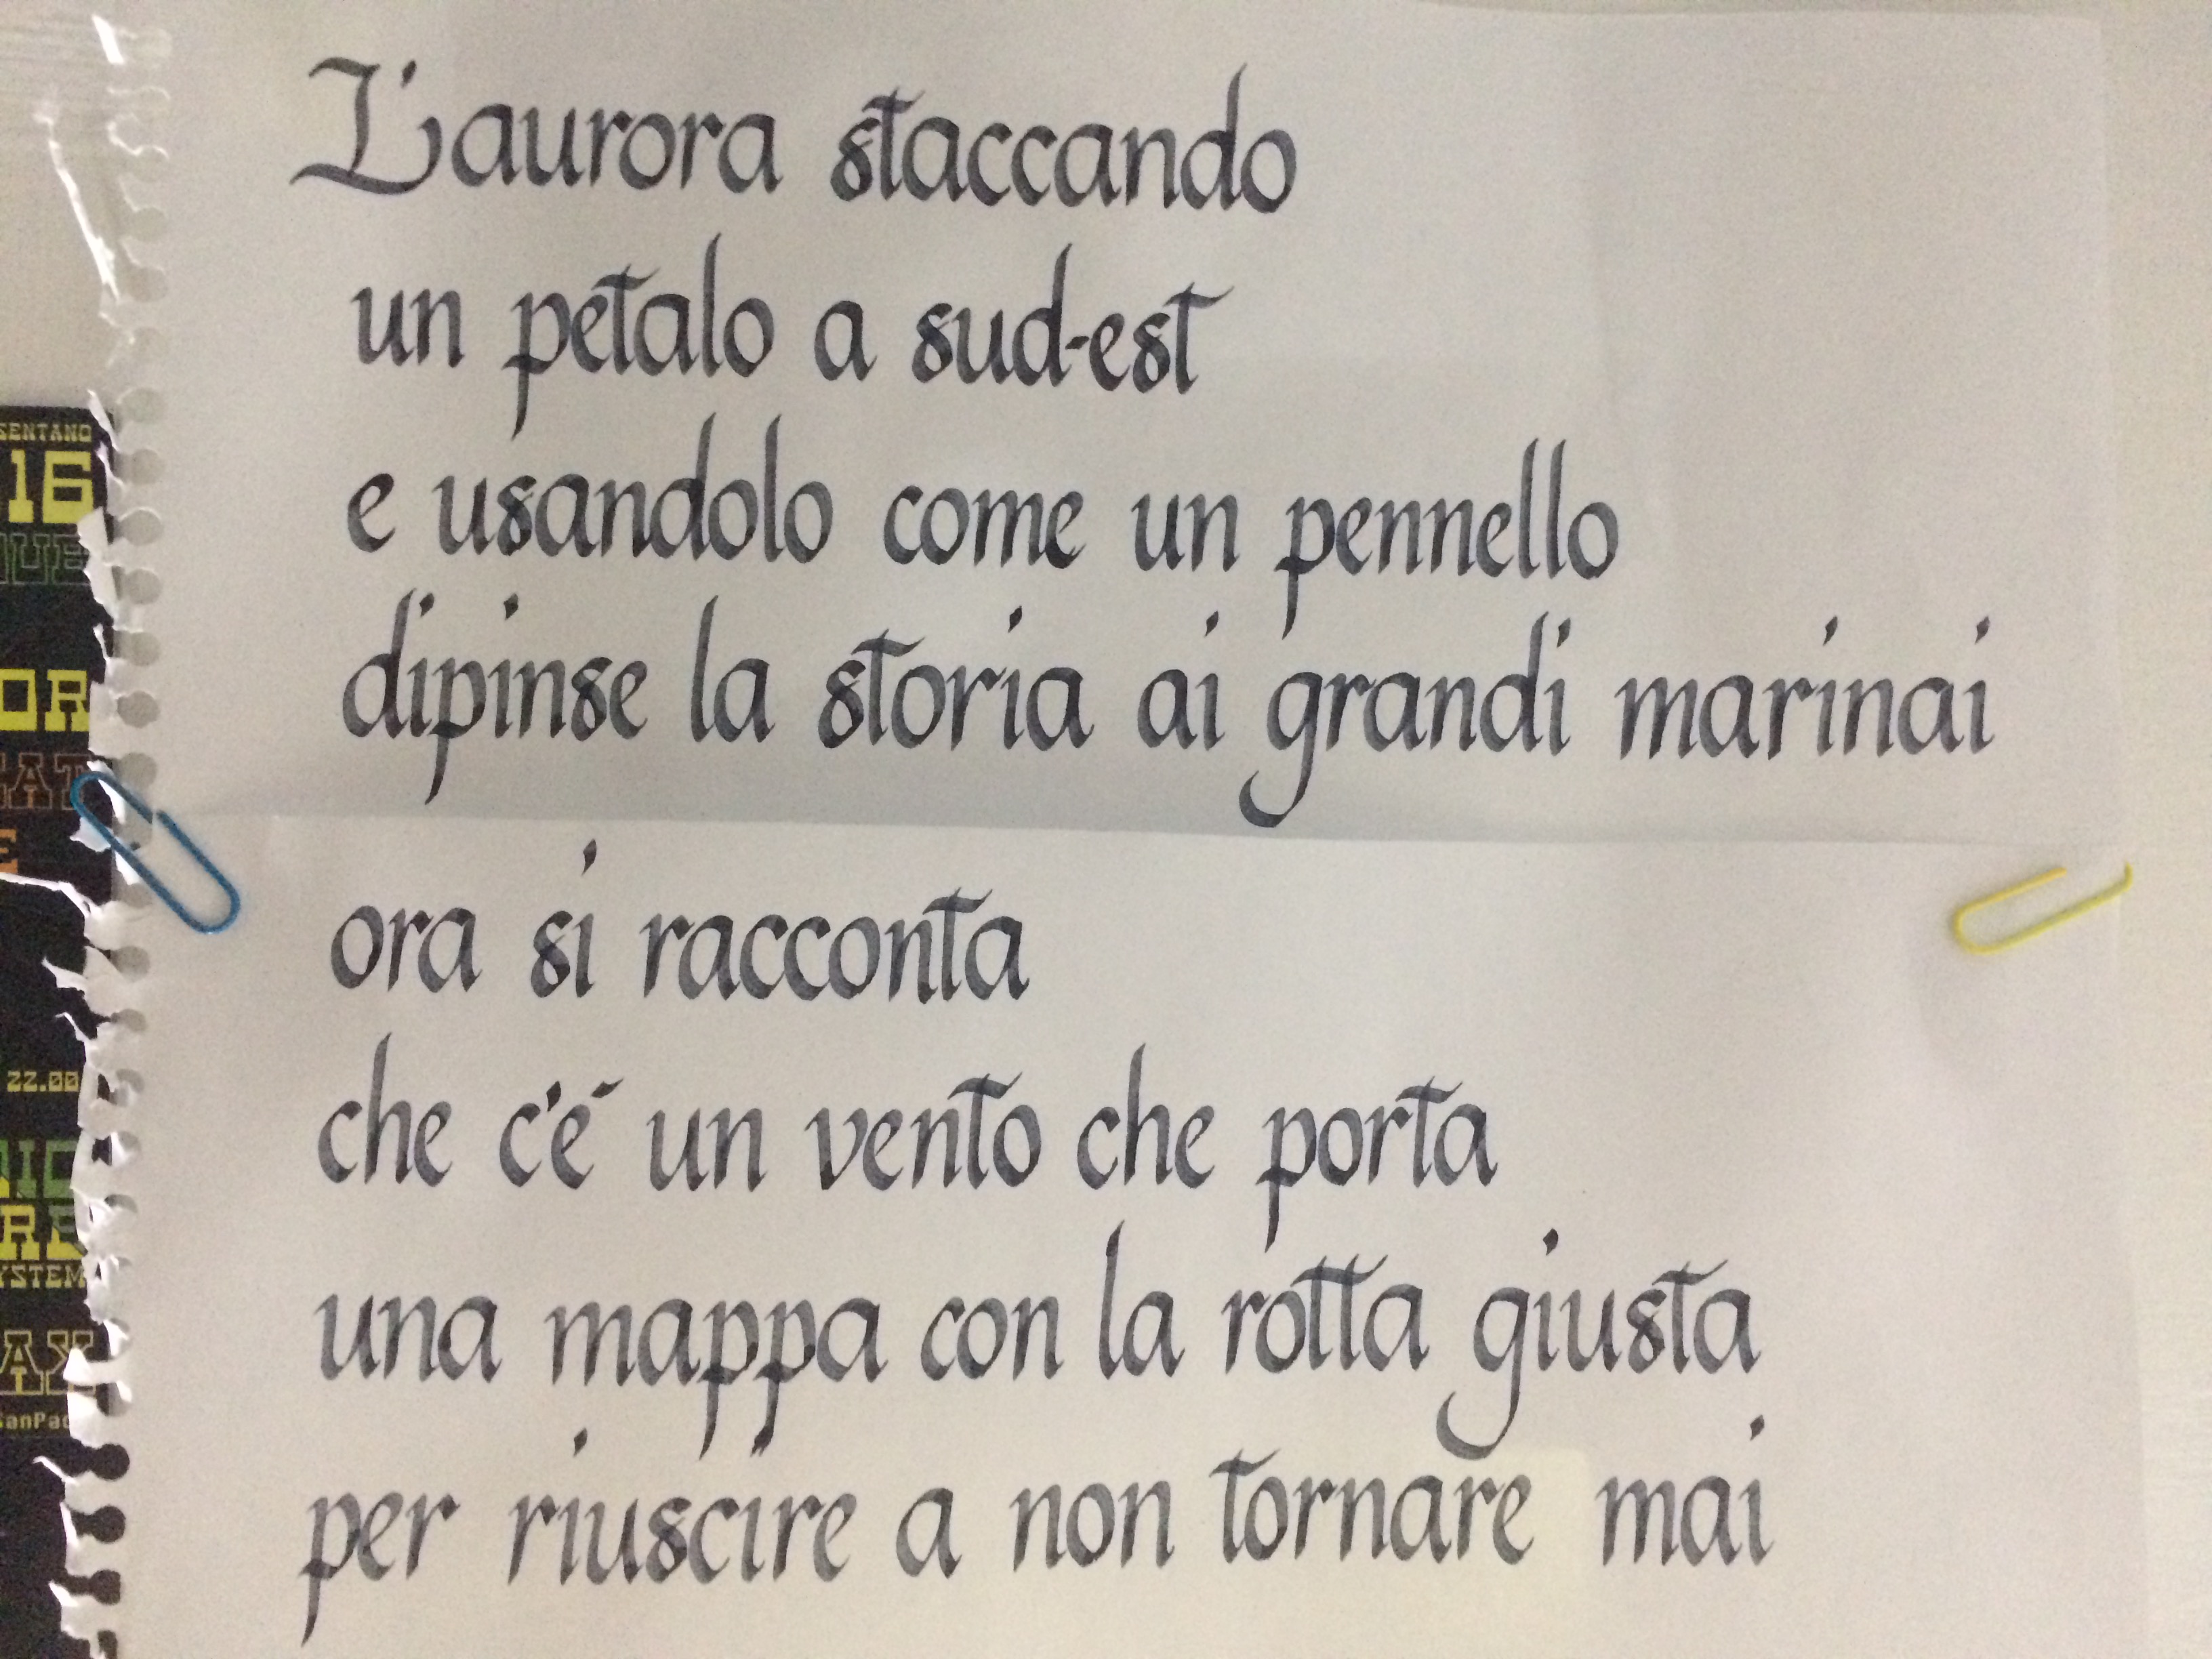 L'aurora staccando
un petalo a sud-est
e usandolo come un pennello
dipinse la storia ai grandi marinai
ora si racconta
che c'é un vento che porta
una mappa con la rotta giusta
per riuscire a non tornare mai
16
22.00